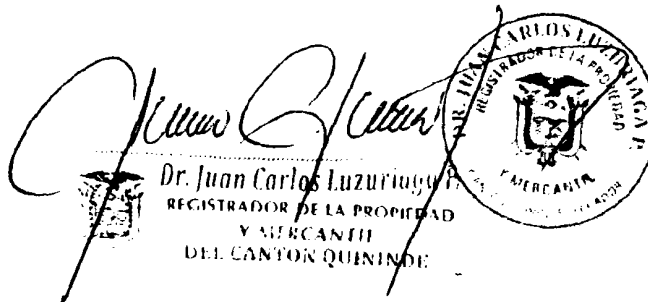 Dr. Juan Carlos Luzuriaga P.
REGISTRADOR DE LA PROPIEDAD
Y MERCANTIL
DEL CANTON QUININDE
DR. JUAN CARLOS LUZURIAGA P.
REGISTRADOR DE LA PROPIEDAD
Y MERCANTIL
ECUADOR